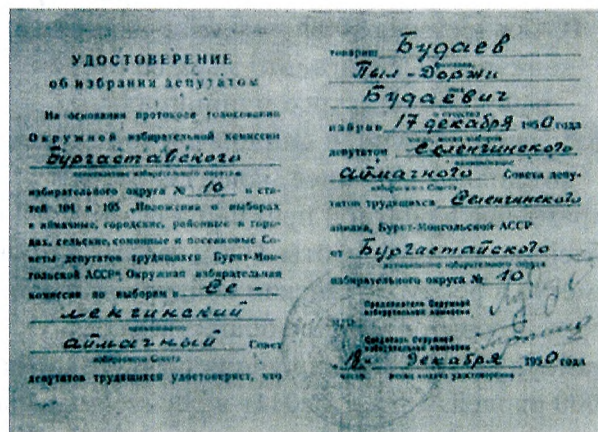 УДОСТОВЕРЕНИЕ
об избрании депутатом
На основании протокола голосования
Окружной избирательной комиссии
Бургаставского
наименование избирательного округа
избирательного округа № 10 и ста-
тей 104 и 105 „Положения о выборах
в аймачные, городские, районные в горо-
дах, сельские, сомонные и поселковые Со-
веты депутатов трудящихся Бурят-Мон-
гольской АССР“ Окружная избирательная
комиссия по выборам в Се-
ленгинский
аймачный Совет
наименование Совета
депутатов трудящихся удостоверяет, что
товарищ Будаев
Пыл-Доржи
Будаевич
избран 17 декабря 1950 года
депутатом Селенгинского
аймачного Совета депу-
татов трудящихся Селенгинского
аймака, Бурят-Монгольской АССР
от Бургастайского
наименование избирательного округа
избирательного округа № 10
Председатель Окружной
избирательной комиссии
М.П.
Секретарь Окружной
избирательной комиссии
декабря 1950 года
число месяц выдачи удостоверения